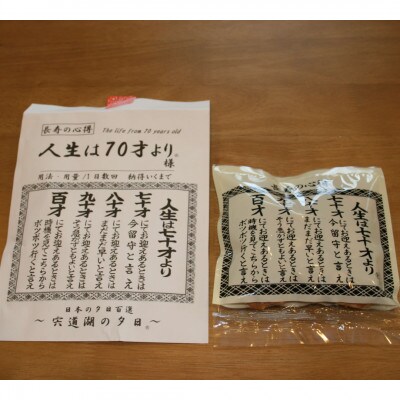 長寿の心得 The life from 70 years old
人生は70才より。
様
用法・用量/1日数回 納得いくまで
人生は七十才より
七十才にてお迎えあるときは
今留守と言え
八十才にてお迎えあるときは
まだまだ早いと言え
九十才にてお迎えあるときは
そう急がずともよいと言え
百才にてお迎えあるときは
時機を見てこちらから
ボツボツ行くと言え
日本の夕日百選
～宍道湖の夕日～
長寿の心得
人生は七十才より
七十才にてお迎えあるときは
今留守と言え
八十才にてお迎えあるときは
まだまだ早いと言え
九十才にてお迎えあるときは
そう急がずともよいと言え
百才にてお迎えあるときは
時機を見てこちらから
ボツボツ行くと言え